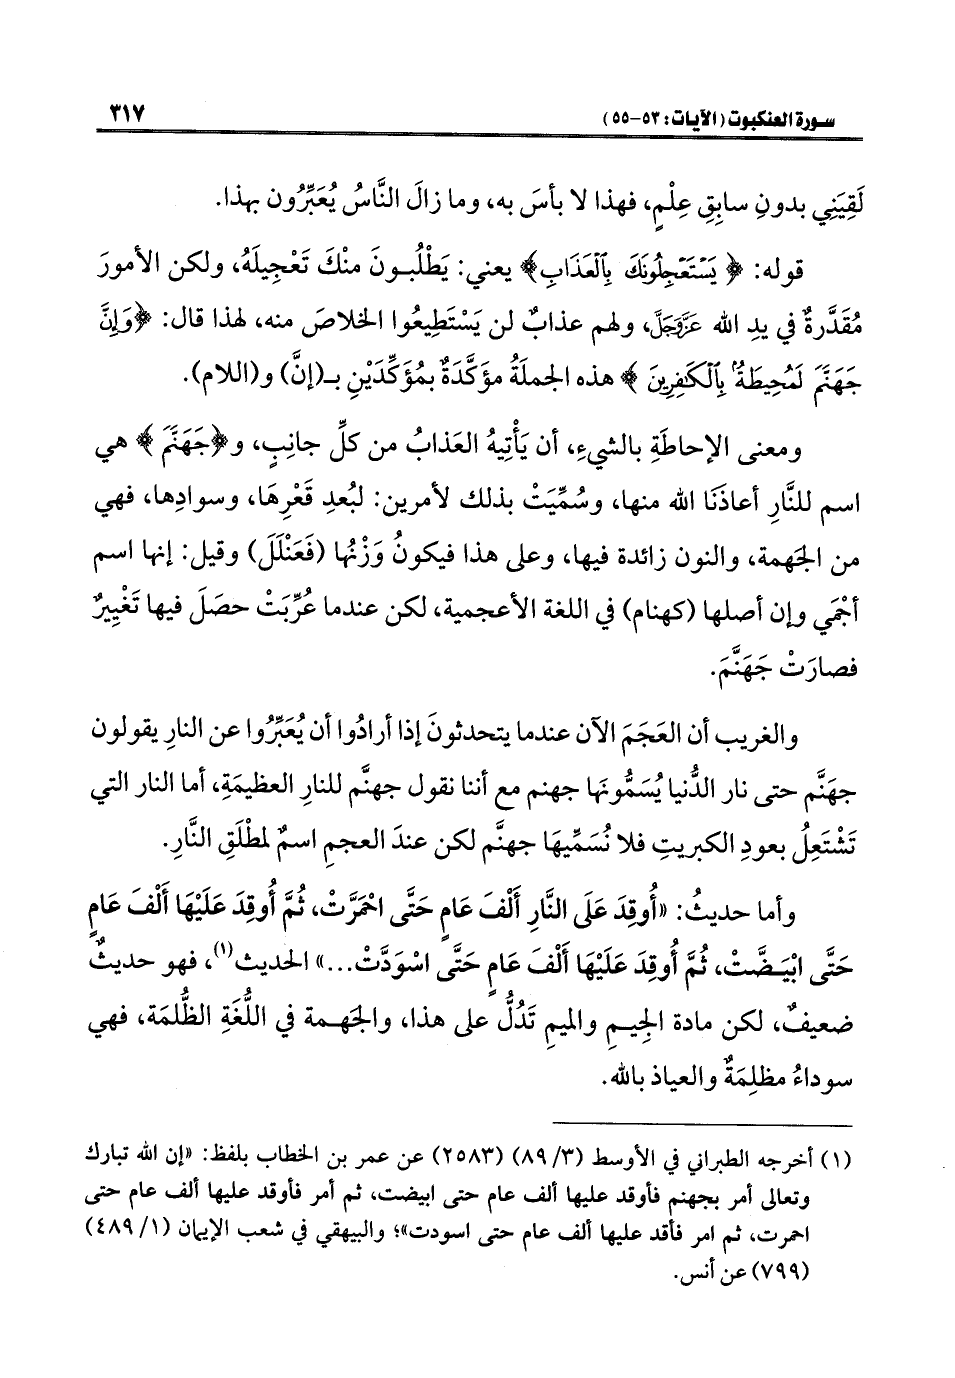 سورة العنكبوت (الآيات: ٥٣-٥٥)
٣١٧
لَقِيَنِي بدونِ سابِقِ عِلْمٍ، فهذا لا بأسَ به، وما زالَ النَّاسُ يُعَبِّرُون بهذا.
قوله: ﴿يَسْتَعْجِلُونَكَ بِٱلْعَذَابِ﴾ يعني: يَطْلُبونَ منْكَ تَعْجِيلَهُ، ولكن الأمورَ
مُقَدَّرةٌ في يدِ الله عَزَّوَجَلَّ، ولهم عذابٌ لن يَسْتَطِيعُوا الخلاصَ منه، لهذا قال: ﴿وَإِنَّ
جَهَنَّمَ لَمُحِيطَةٌۢ بِٱلْكَٰفِرِينَ﴾ هذه الجملَةُ مؤكَّدَةٌ بمُؤَكِّدَيْنِ بـ(إنَّ) و(اللام).
ومعنى الإحاطَةِ بالشيءِ، أن يَأْتِيهُ العَذابُ من كلِّ جانِبٍ، و﴿جَهَنَّمَ﴾ هي
اسم للنَّارِ أعاذَنَا الله منها، وسُمِّيَتْ بذلك لأمرين: لبُعدِ قَعْرِهَا، وسوادِها، فهي
من الجَهمة، والنون زائدة فيها، وعلى هذا فيكونُ وَزْنُها (فَعَنْلَلَ) وقيل: إنها اسم
أجْمَي وإن أصلها (كهنام) في اللغة الأعجمية، لكن عندما عُرِّبَتْ حصَلَ فيها تَغْييرٌ
فصارَتْ جَهَنَّمَ.
والغريب أن العَجَمَ الآن عندما يتحدثونَ إذا أرادُوا أن يُعَبِّرُوا عن النارِ يقولون
جهَنَّم حتى نار الدُّنيا يُسَمُّونَها جهنم مع أننا نقول جهنَّم للنارِ العظيمَةِ، أما النار التي
تَشْتَعِلُ بعودِ الكبريتِ فلا نُسَمِّيهَا جهنَّم لكن عندَ العجمِ اسمٌ لمطْلَقِ النَّارِ.
وأما حديثُ: «أُوقِدَ عَلَى النَّارِ أَلْفَ عَامٍ حَتَّى احْمَرَّتْ، ثُمَّ أُوقِدَ عَلَيْهَا أَلْفَ عَامٍ
حَتَّى ابْيَضَّتْ، ثُمَّ أُوقِدَ عَلَيْهَا أَلْفَ عَامٍ حَتَّى اسْوَدَّتْ...» الحديث(١)، فهو حديثٌ
ضعيفٌ، لكن مادة الجِيمِ والميمِ تَدُلُّ على هذا، والجهمة في اللُّغَةِ الظُّلمَة، فهي
سوداءُ مظلِمَةٌ والعياذ بالله.
(١) أخرجه الطبراني في الأوسط (٣/ ٨٩) (٢٥٨٣) عن عمر بن الخطاب بلفظ: «إن الله تبارك
وتعالى أمر بجهنم فأوقد عليها ألف عام حتى ابيضت، ثم أمر فأوقد عليها ألف عام حتى
احمرت، ثم امر فأقد عليها ألف عام حتى اسودت»؛ والبيهقي في شعب الإيمان (١/ ٤٨٩)
(٧٩٩) عن أنس.